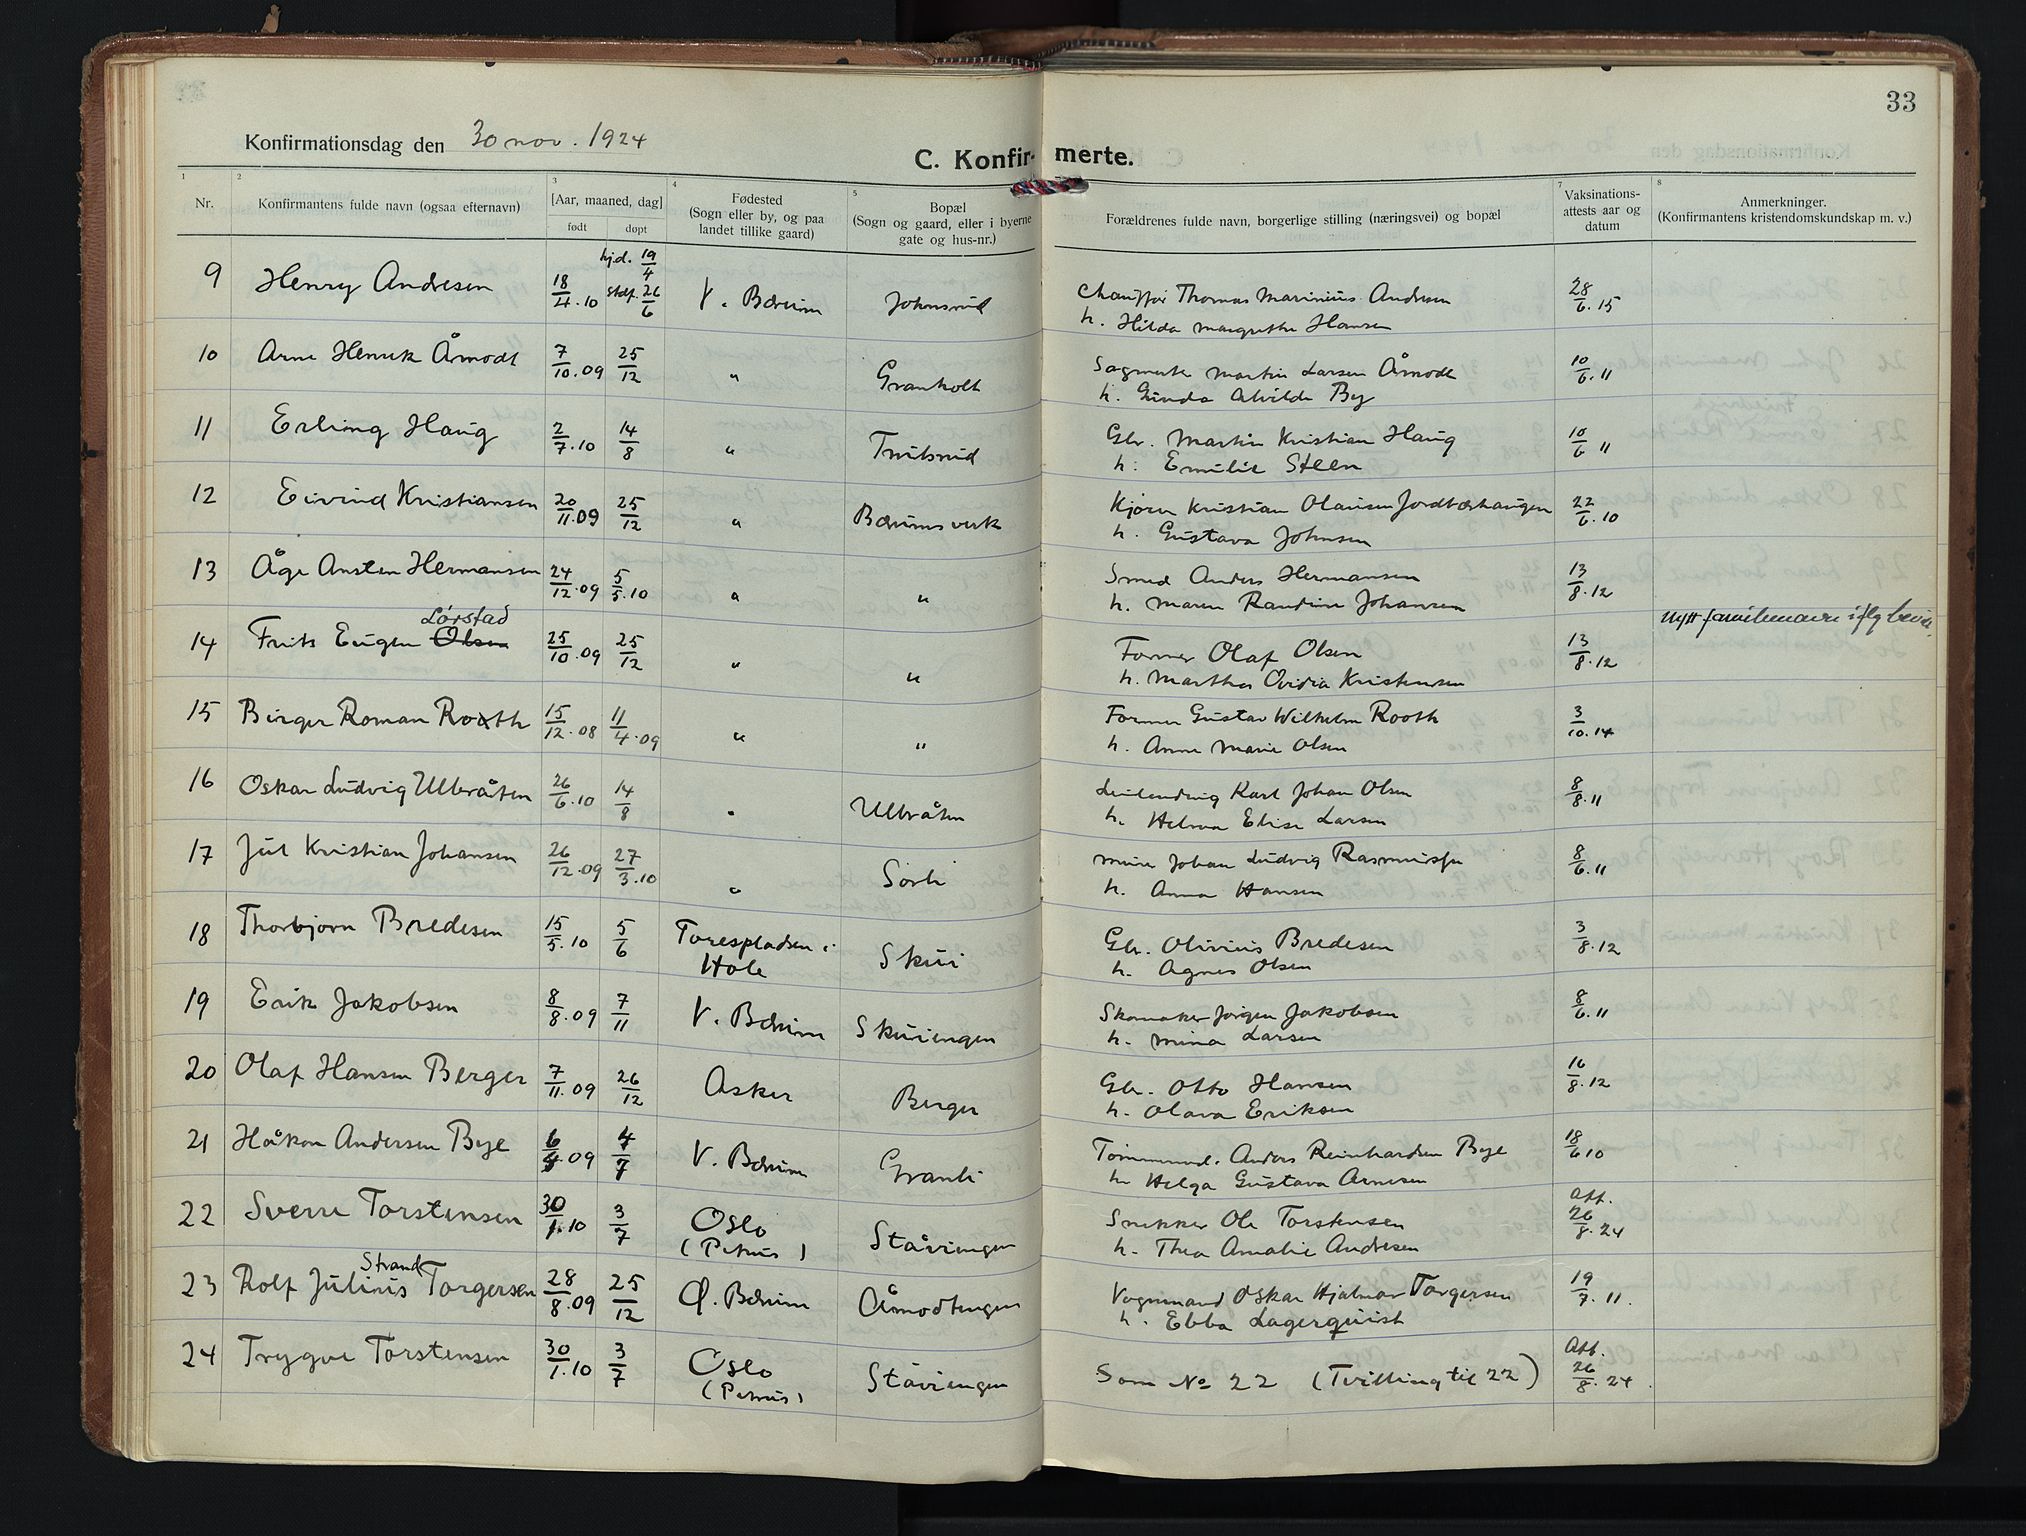 33
Konfirmationsdag den 30 nov. 1924
C. Konfirmerte.
1 2 3 4 5 7 8
Nr.
Konfirmantens fulde navn (ogsaa efternavn)
[Aar, maaned, dag]
født døpt
Fødested
(Sogn eller by, og paa
landet tillike gaard)
Bopæl
(Sogn og gaard, eller i byerne
gate og hus-nr.)
Forældrenes fulde navn, borgerlige stilling (næringsvei) og bopæl
Vaksinations-
attests aar og
datum
Anmerkninger.
(Konfirmantens kristendomskundskap m. v.)
9 Henry Andresen 18/4.10 hj.d. 19/4 stdf. 26/6 V. Bærum Johnsrud Chauffør Thomas Marinius Andresen 28/6.15
h. Hilda Margrethe Hansen
10 Arne Henrik Åmodt 7/10.09 25/12 " Granholt Sagmester Martin Larsen Åmodt 10/6.11
h. Gunda Alvilde By
11 Erling Haug 2/7.10 14/8 " Trulsrud Gbr. Martin Kristian Haug 10/6 11
h. Emilie Steen
12 Eivind Kristiansen 20/11.09 25/12 " Bærums verk Kjører Kristian Olausen Jordbærhaugen 22/6.10
h. Gustava Johnsen
13 Åge Ansten Hermansen 24/12.09 5/5.10 " " Smed Anders Hermansen 13/8.12
h. Maren Randine Johansen
Lørstad
14 Frits Eugen Olsen 25/10.09 25/12 " " Former Olaf Olsen 13/8.12 Nytt familienavn iflg bevis.
h. Martha Ovidia Kristensen
15 Birger Roman Rooth 15/12.08 11/4.09 " " Former Gustav Wilhelm Rooth 3/10.14
h. Anne Marie Olsen
16 Oskar Ludvig Ulbråten 26/6.10 14/8 " Ulbråten Leilending Karl Johan Olsen 8/8.11
h. Helma Elise Larsen
17 Jul Kristian Johansen 26/12.09 27/3.10 " Sørli Murer Johan Ludvig Rasmussen 8/6.11
h. Anna Hansen
18 Thorbjørn Bredesen 15/5.10 5/6 Torespladsen i Skui Gbr. Olivius Bredesen 3/8.12
Hole h. Agnes Olsen
19 Erik Jakobsen 8/8.09 7/11 V. Bærum Skuiengen Skomaker Jørgen Jakobsen 8/6.11
h. Mina Larsen
20 Olaf Hansen Berger 7/11.09 26/12 Asker Berger Gbr. Otto Hansen 16/8.12
h. Olava Eriksen
21 Håkon Andersen Bye 6/4.09 4/7 V. Bærum Granli Tømmermd. Anders Reinhardsen Bye 18/6 10
h. Helga Gustava Arnesen
22 Sverre Torstensen 30/1.10 3/7 Oslo Ståviengen Snekker Ole Torstensen Att. 26/8.24
(Petrus) h. Thea Amalie Andresen
Strand
23 Rolf Julius Torgersen 28/8.09 25/12 Ø. Bærum Åmodtengen Vognmand Oskar Hjalmar Torgersen 19/7.11.
h. Ebba Lagerquist
24 Trygve Torstensen 30/1.10 3/7 Oslo Ståviengen Som No 22 (Tvilling til 22) Att. 26/8.24
(Petrus)